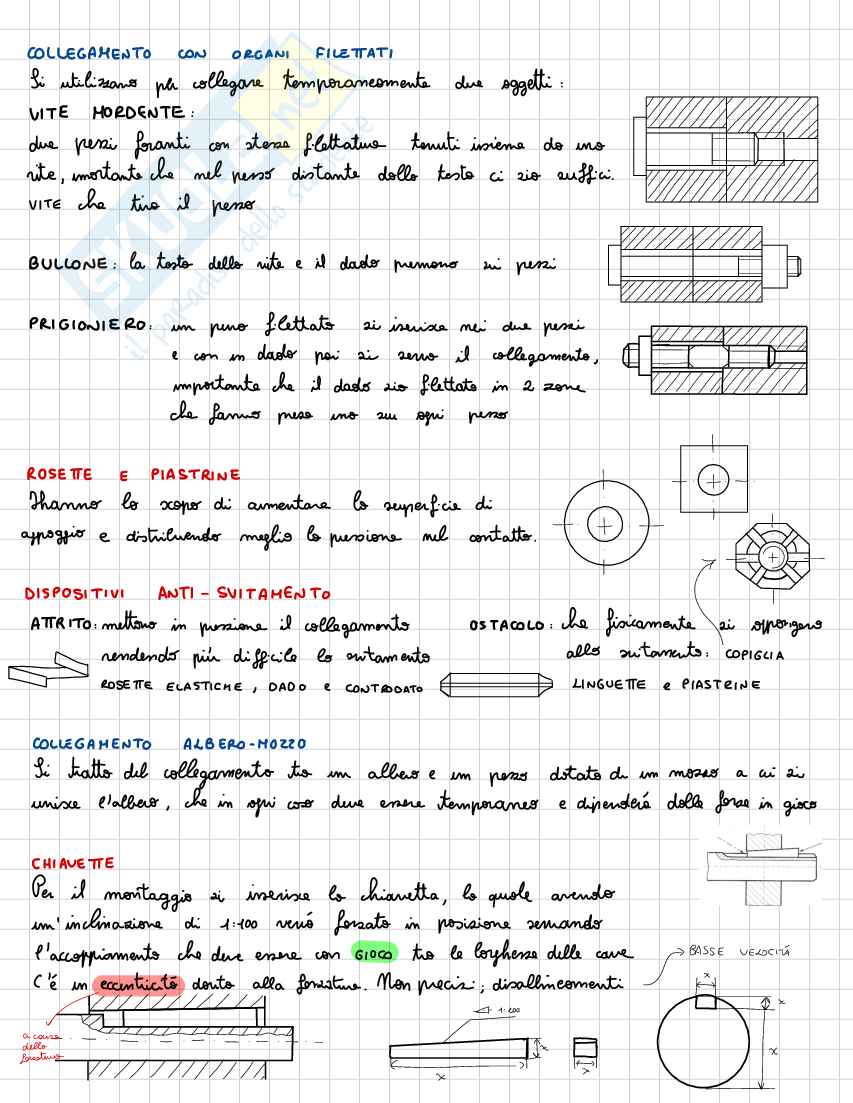 COLLEGAMENTO CON ORGANI FILETTATI
Si utilizzano per collegare temporaneamente due oggetti:
VITE MORDENTE:
due pezzi foranti con stessa filettatura tenuti insieme da una
vite, imortante che nel pezzo distante dalla testa ci sia suffici.
VITE che tira il pezzo
BULLONE: la testa della vite e il dado premono sui pezzi
PRIGIONIERO: un perno filettato si iserisce nei due pezzi
e con un dado poi si serra il collegamento,
importante che il dado sia filettato in 2 zone
che fanno presa una su ogni pezzo
ROSETTE E PIASTRINE
Hanno lo scopo di aumentare la superficie di
appoggio e distribuendo meglio la pressione nel contatto.
DISPOSITIVI ANTI-SVITAMENTO
ATTRITO: mettono in pressione il collegamento
rendendo più difficile lo svitamento
ROSETTE ELASTICHE, DADO e CONTRODATO
OSTACOLO: che fisicamente si oppongono
allo svitamento: COPIGLIA
LINGUETTE e PIASTRINE
COLLEGAMENTO ALBERO-MOZZO
Si tratta del collegamento tra un albero e un pezzo dotato di un mozzo a cui si
unisce l'albero, che in ogni caso deve essere temporaneo e dipenderá dalle forze in gioco
CHIAVETTE
Per il montaggio si inserisce la chiavetta, la quale avendo
un'inclinazione di 1:100 verrá forzata in posizione serrando
l'accoppiamento che deve essere con GIOCO tra le larghezze delle cave
C'é un eccentricitá dovuta alla forzatura. Non precisi; disallineamenti
BASSE VELOCITÁ
a causa
della
forzatura
1:100
x
x
x
x
x
x
SKUOLA.net
il paradiso dello studente